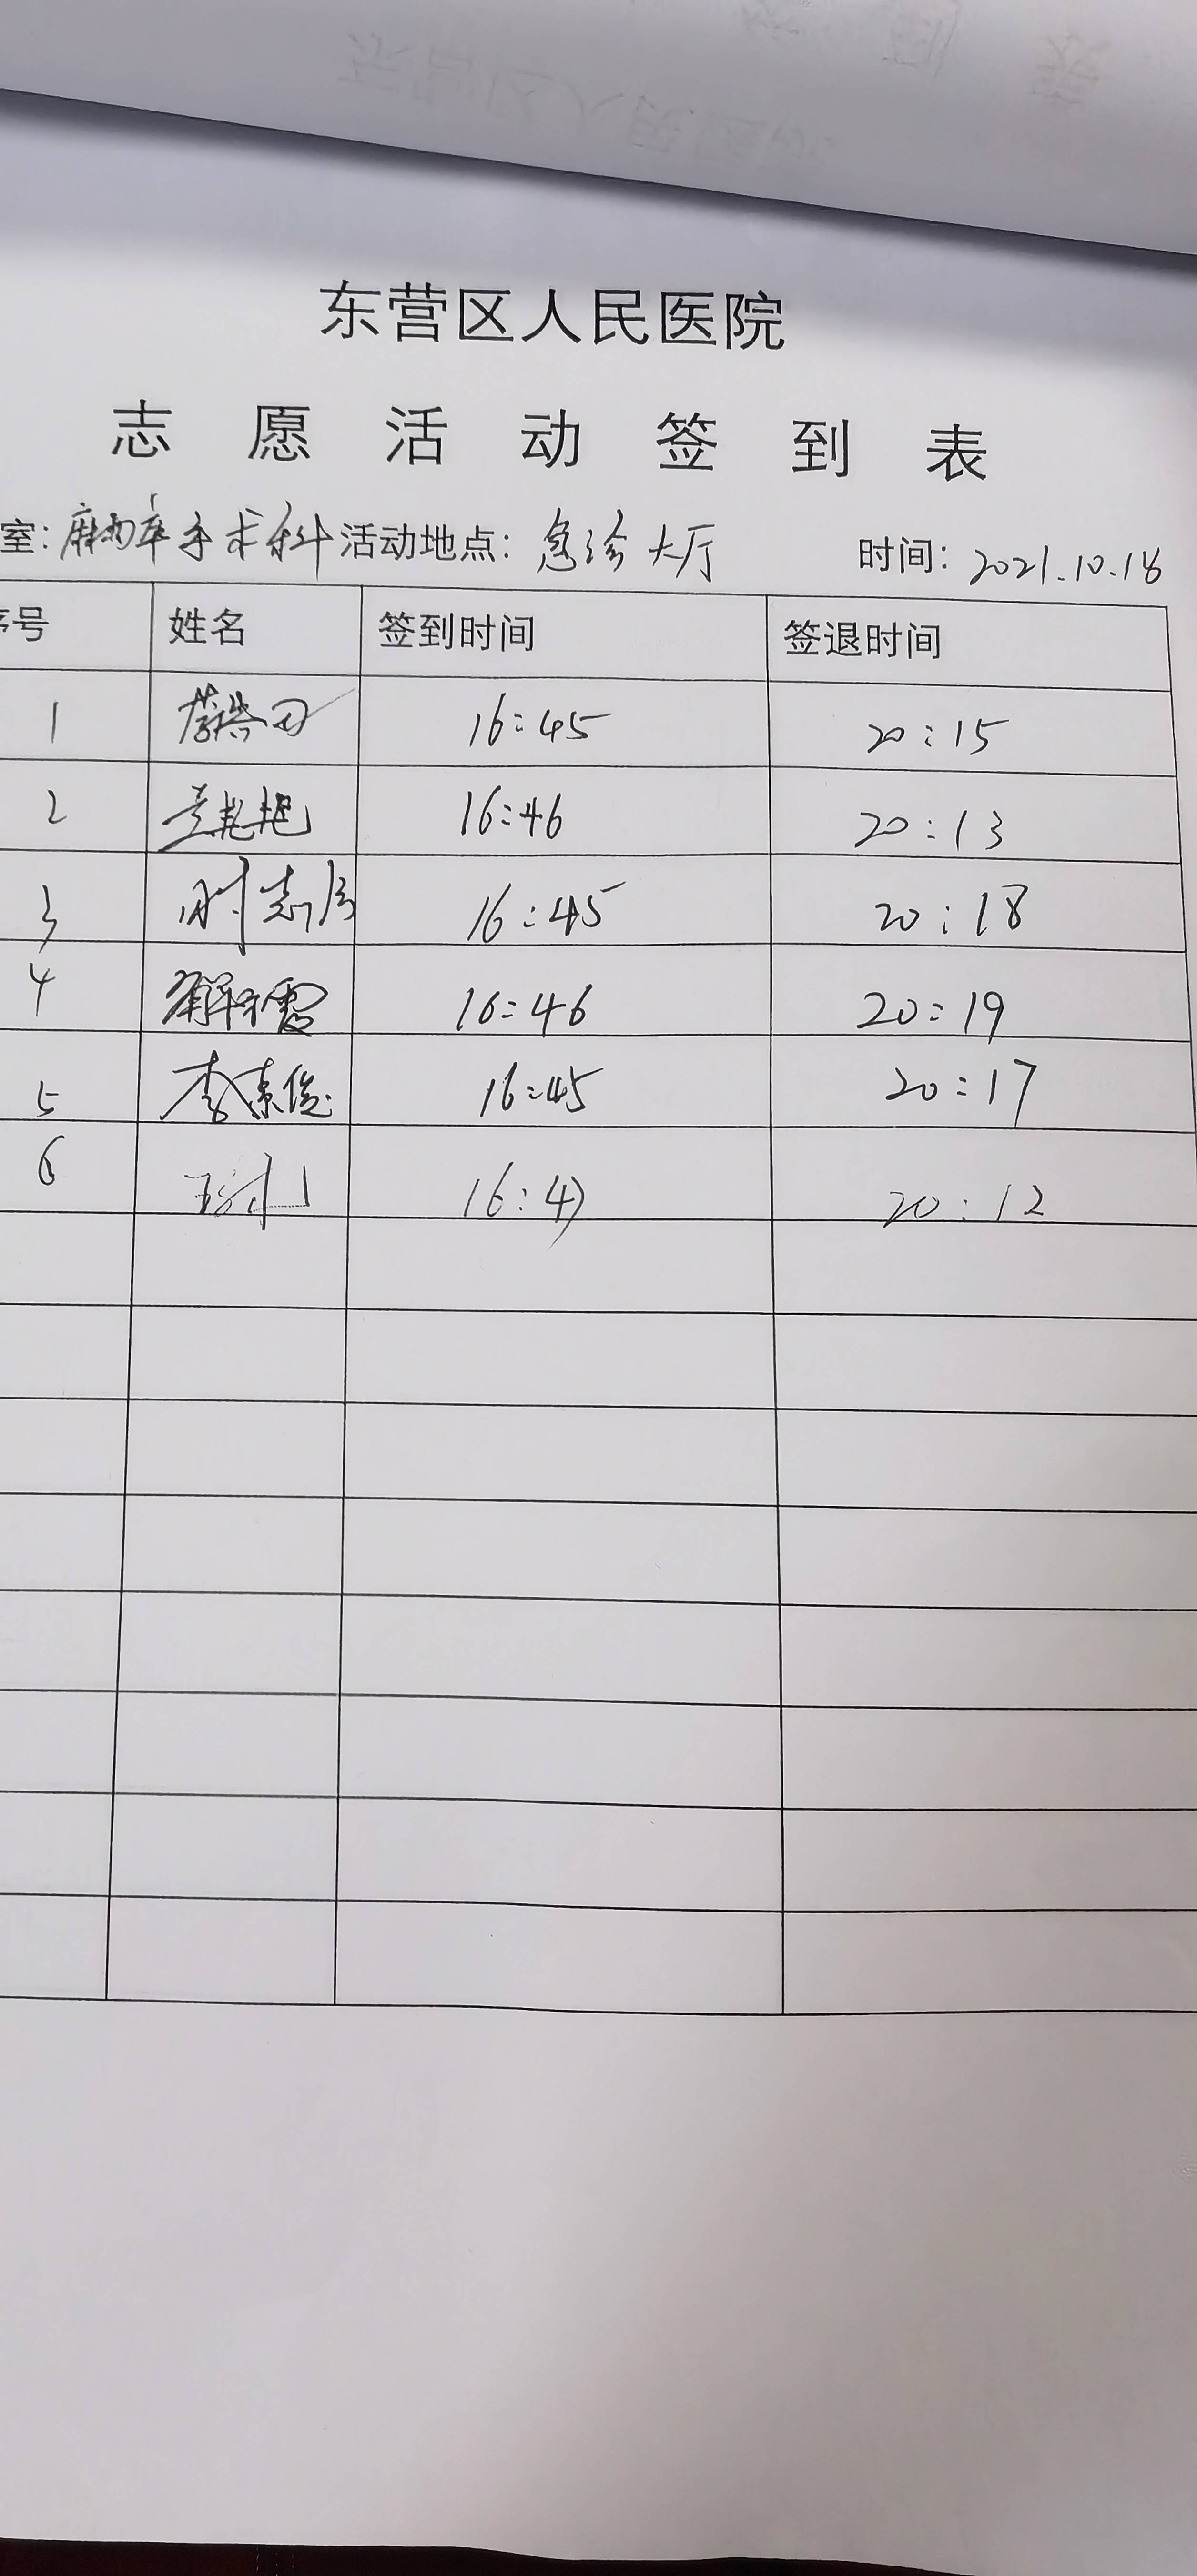 东营区人民医院
志愿活动签到表
室:麻醉手术科 活动地点:急诊大厅 时间:2021.10.18
序号 姓名 签到时间 签退时间
1 16:45 20:15
2 16:46 20:13
3 时志 16:45 20:18
4 解 16:46 20:19
5 李素俊 16:45 20:17
6 16:47 20:12